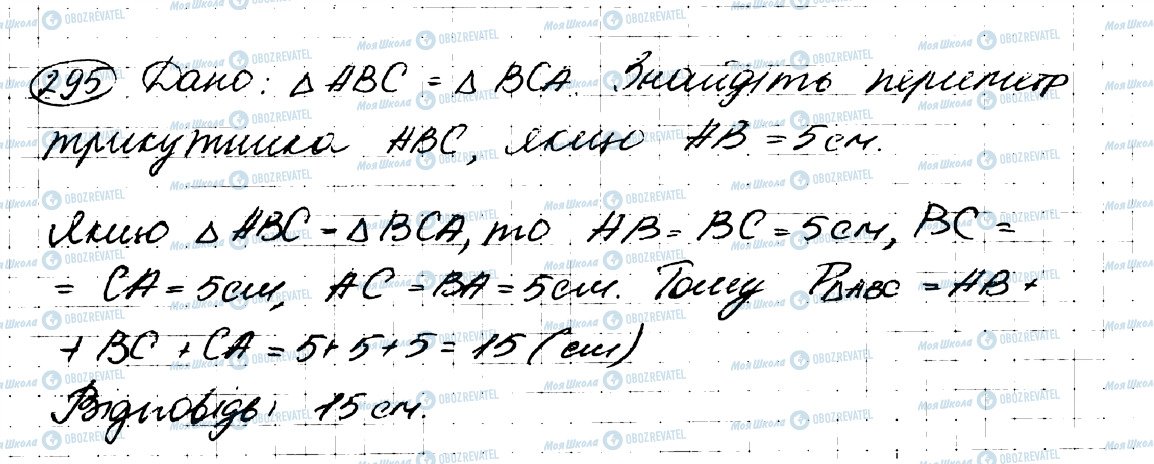 295 Дано: △ ABC = △ BCA. Знайдіть периметр
трикутника ABC, якщо AB = 5 см.
Якщо △ ABC = △ BCA, то AB = BC = 5 см, BC =
= CA = 5 см, AC = BA = 5 см. Тому P△ABC = AB +
+ BC + CA = 5 + 5 + 5 = 15 (см)
Відповідь: 15 см.